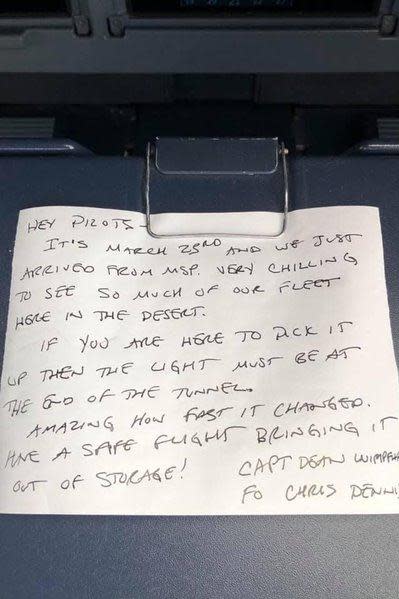 HEY PILOTS -
IT'S MARCH 23RD AND WE JUST
ARRIVED FROM MSP. VERY CHILLING
TO SEE SO MUCH OF OUR FLEET
HERE IN THE DESERT.
IF YOU ARE HERE TO PICK IT
UP THEN THE LIGHT MUST BE AT
THE END OF THE TUNNEL.
AMAZING HOW FAST IT CHANGED.
HAVE A SAFE FLIGHT BRINGING IT
OUT OF STORAGE!
CAPT DEAN
FO CHRIS